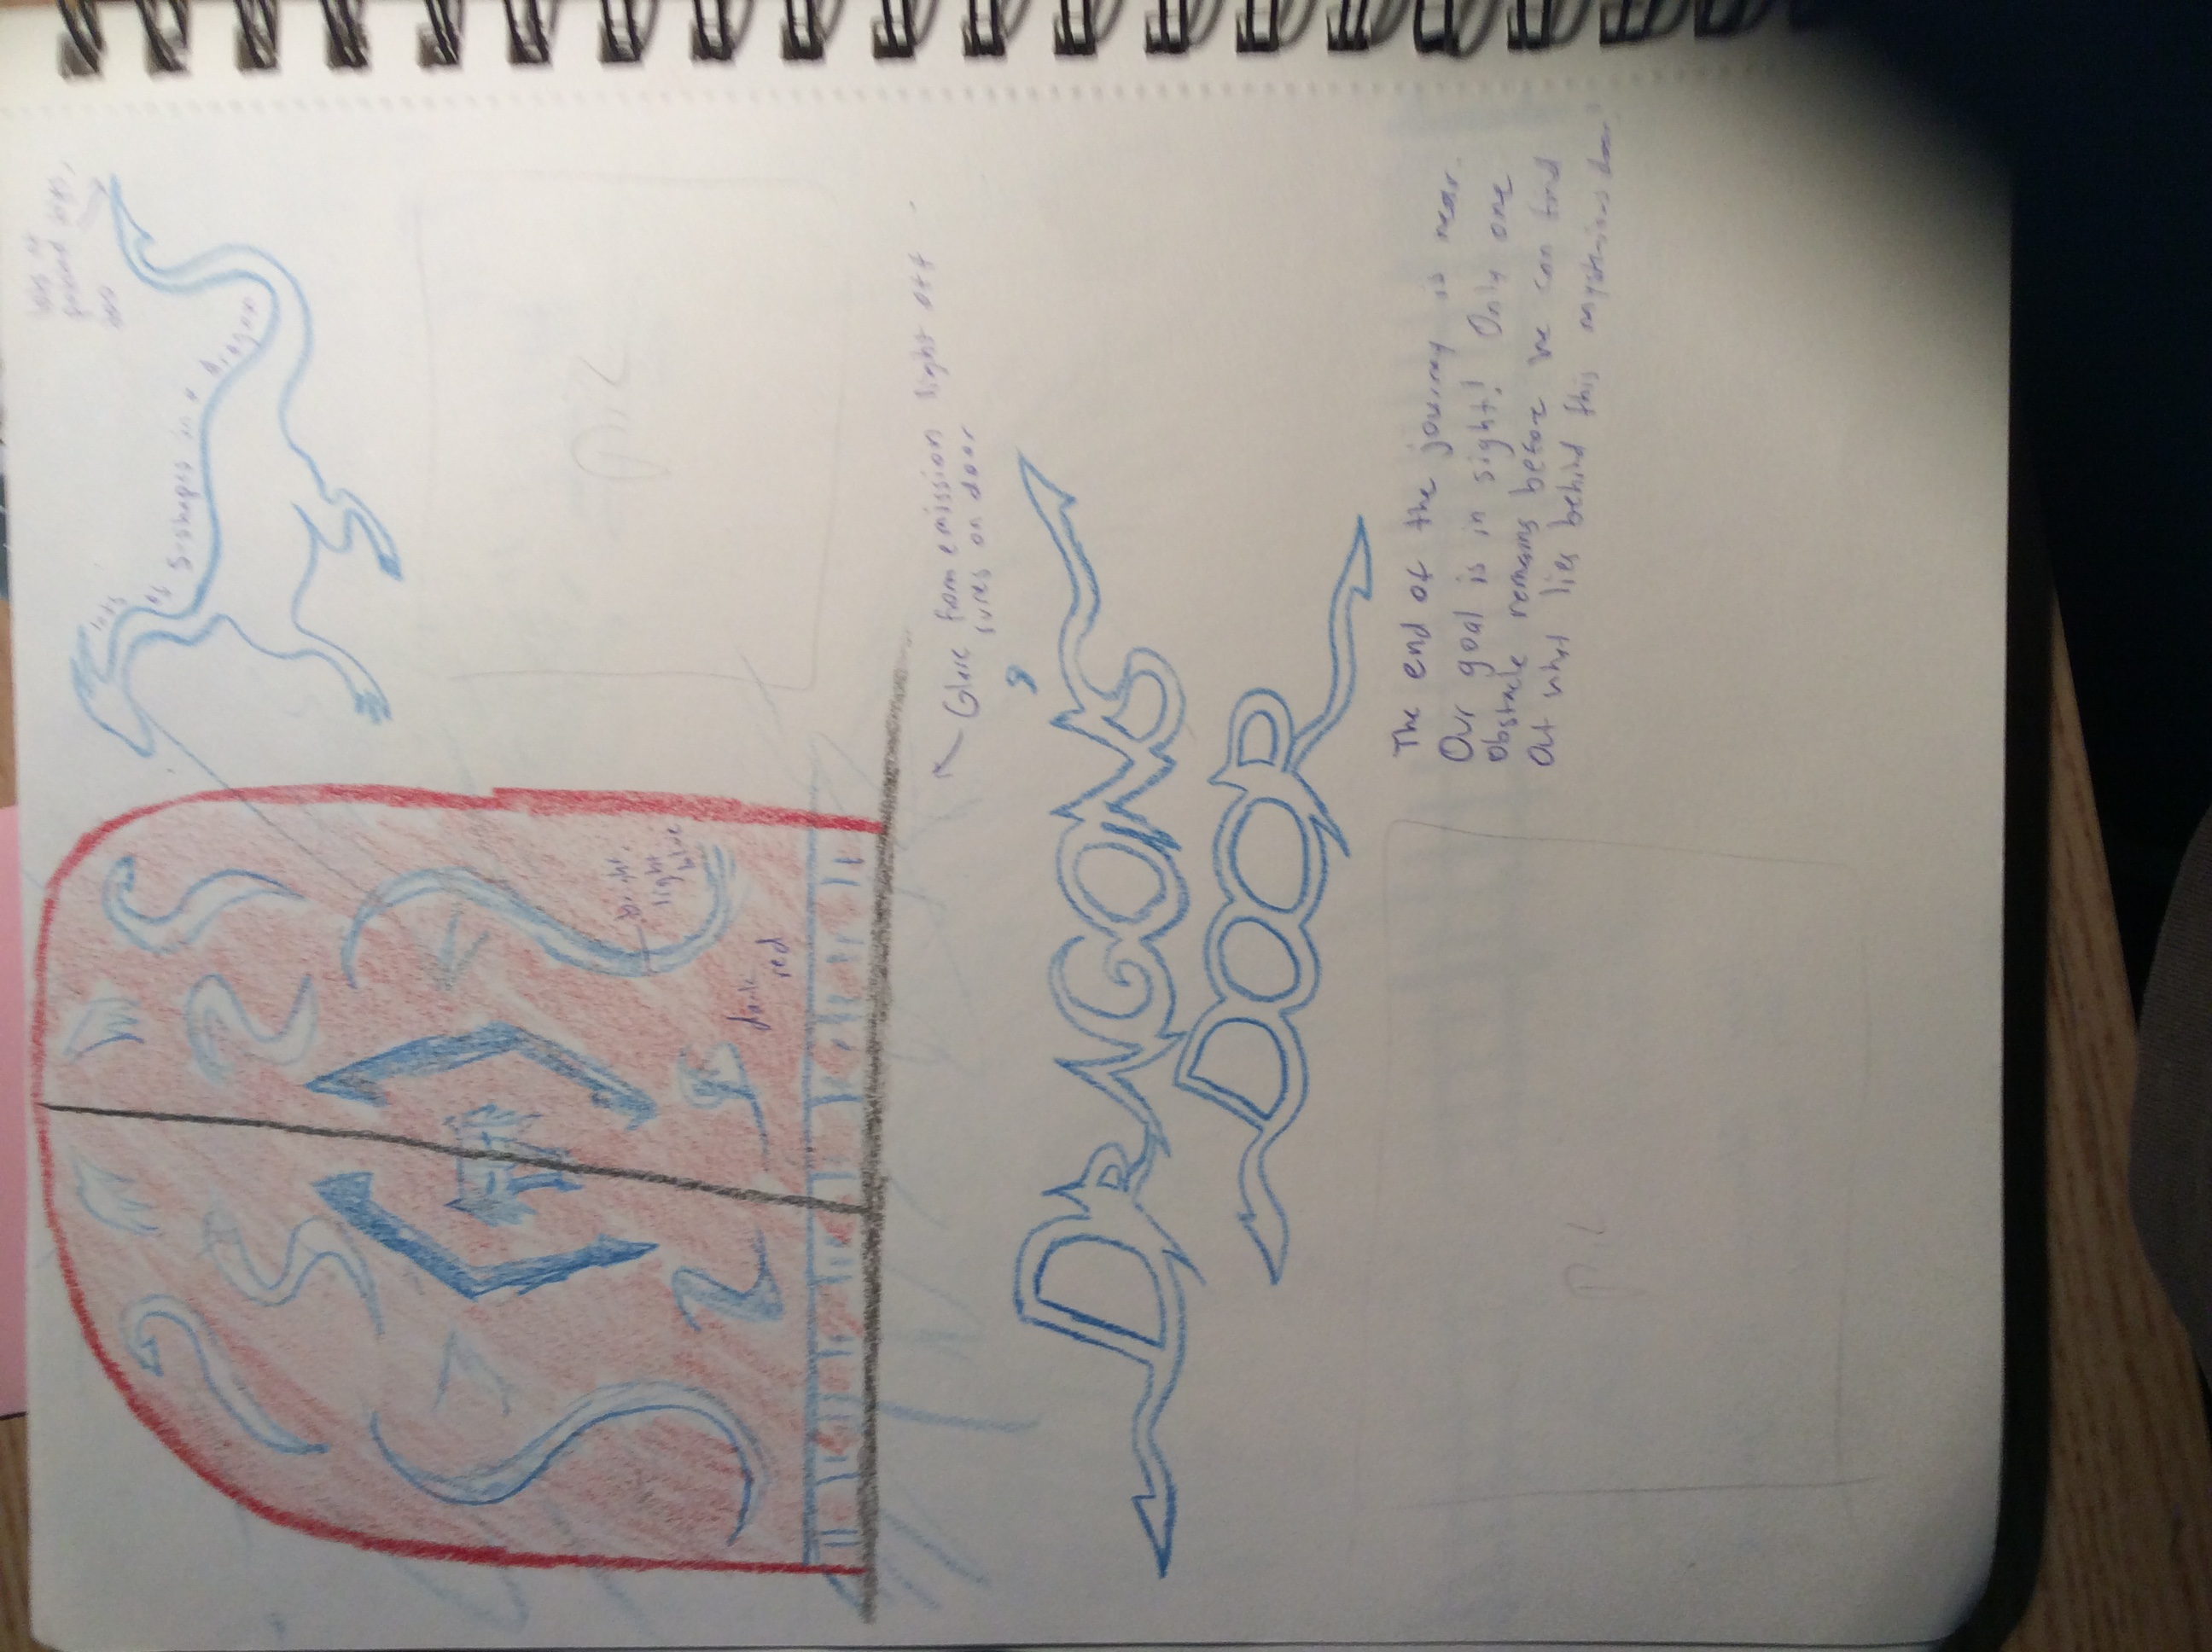 lots of
pointed tips,
too
lots
of S-shapes in a dragon
bright,
light
blue
dark
red
pic
Glare from emission light off
runes on door
DRAGON'S
DOOR
The end of the journey is near.
Our goal is in sight! Only one
obstacle remains before we can find
out what lies behind this mysterious door!
pic